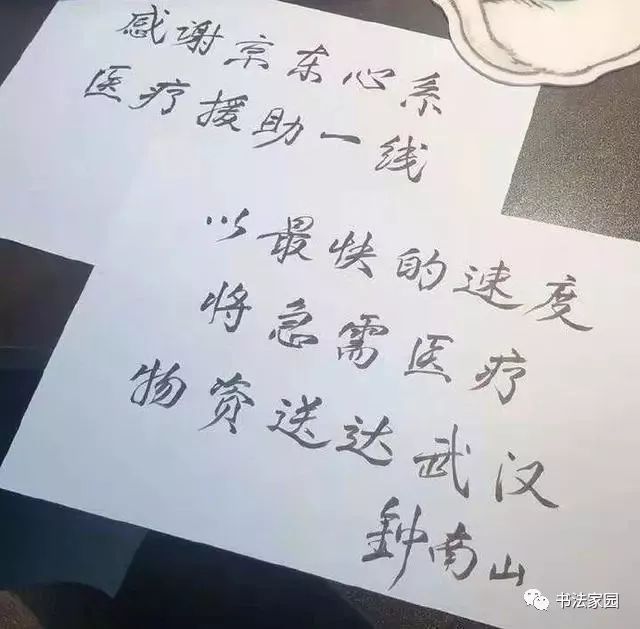 感谢京东心系
医疗援助一线
以最快的速度
将急需医疗
物资送达武汉
鍾南山
书法家园